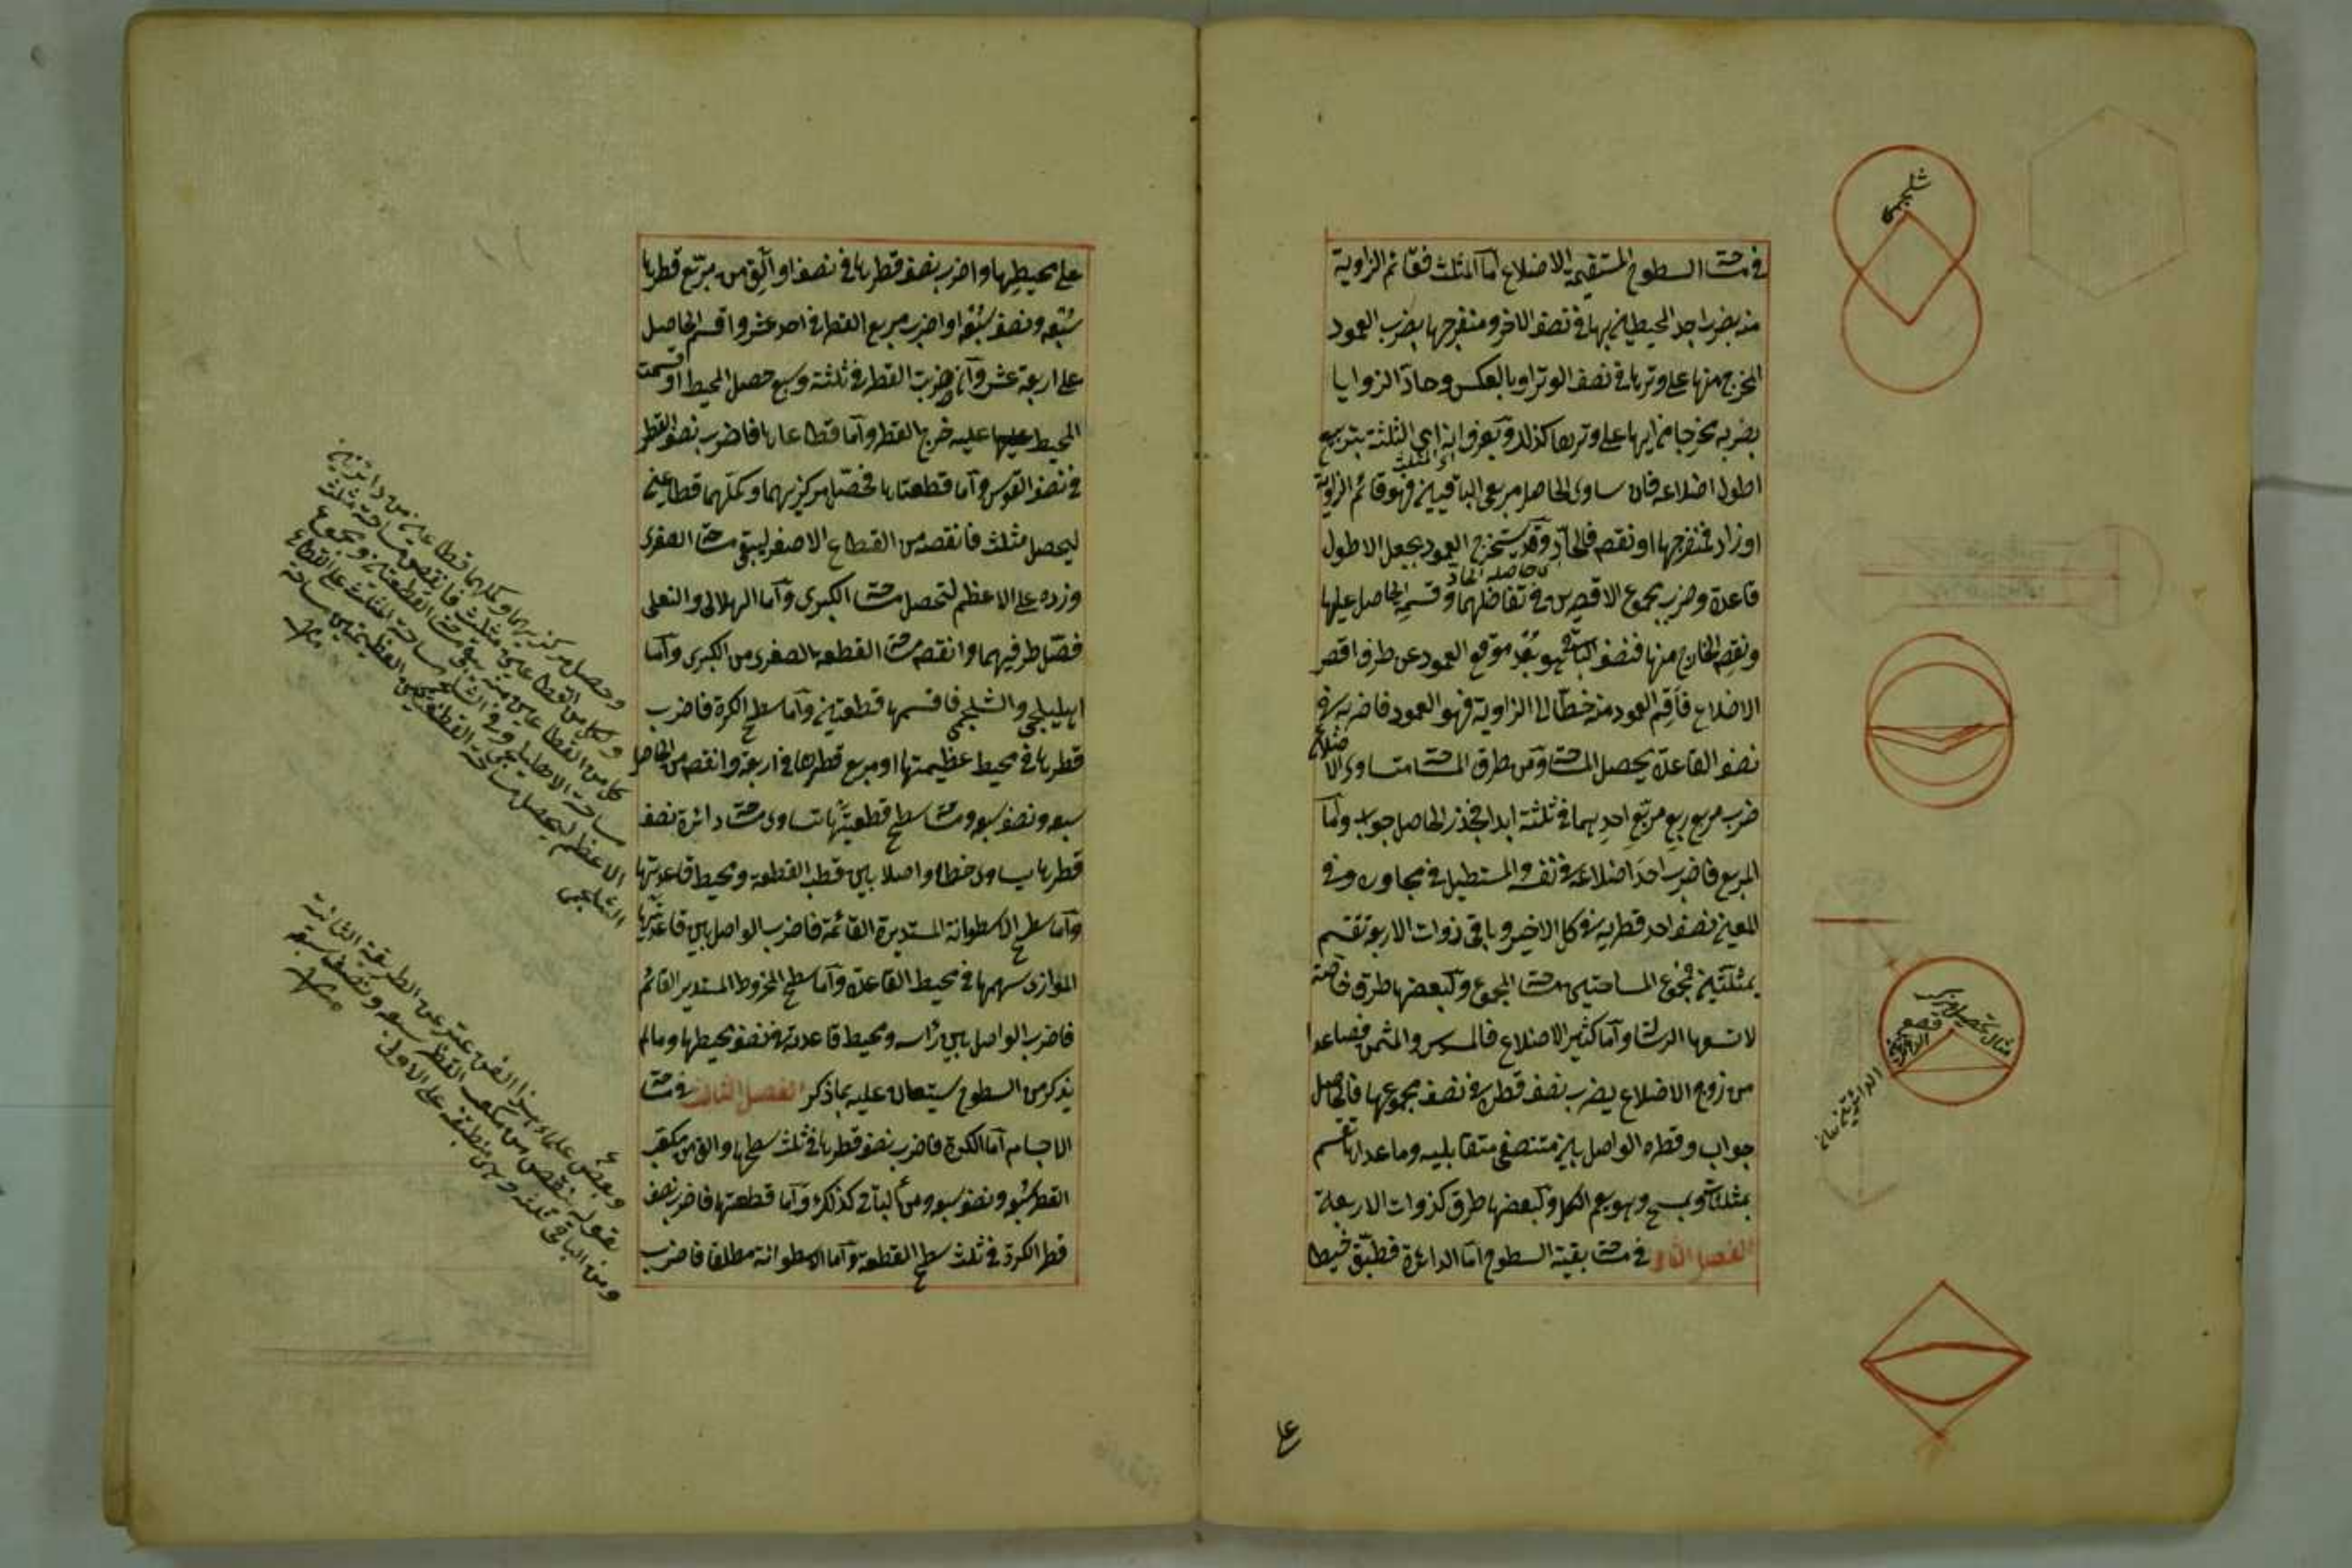 في مساحة السطوح المستقيمة الاضلاع اما المثلث فقائم الزاوية
منه بضرب احد المحيطين بها في نصف الاخر ومنفرجها بضرب العمود
المخرج منها على وترها في نصف الوتر او بالعكس وحاد الزوايا
بضربه مخرجا من ايها على وترها كذلك ويعرف انه اي الثلثة بتربيع
اطول اضلاعه فان ساوى الحاصل مربعي الباقيين فهو قائم الزاوية
اي المثلث
او زاد فمنفرجها او نقص فالحاد وقد يستخرج العمود بجعل الاطول
قاعدة وضرب مجموع الاقصرين في تفاضلهما وقسم الحاصل عليها
ونقص الخارج منها فنصف الباقي هو بعد موقع العمود عن طرف اقصر
الاضلاع فاقم العمود منه خطا الى الزاوية فهو العمود فاضربه في
نصف القاعدة يحصل المساحة ومن طرق المساحة متساوي الاضلاع
ضرب مربع ربع مربع احدهما في ثلثة ابدا فجذر الحاصل جواب واما
المربع فاضرب احد اضلاعه في نفسه والمستطيل في مجاوره وفي
المعين نصف احد قطريه في كل الاخر وباقي ذوات الاربعة تقسم
بمثلثين فمجموع المساحتين مساحة المجموع ولبعضها طرق خاصة
لا تسعها الرسالة واما كثير الاضلاع فالمسدس والمثمن فصاعدا
من زوج الاضلاع يضرب نصف قطره في نصف مجموعها فالحاصل
جواب وقطره الواصل بين منتصفي متقابليه وما عداها تقسم
بمثلثات ويمسح وهو يعم الكل ولبعضها طرق كذوات الاربعة
الفصل الثاني في مساحة بقية السطوح اما الدائرة فطبق خيطا
شلجمي
مثال تحصيل مركب
على محيطها واضرب نصف قطرها في نصفه او الق من مربع قطرها
سبعه ونصف سبعه او اضرب مربع القطر في احد عشر واقسم الحاصل
على اربعة عشر وان ضربت القطر في ثلثة وسبع حصل المحيط او قسمت
المحيط عليه خرج القطر واما قطاعاها فاضرب نصف القطر
في نصف القوس واما قطعتاها فحصل مركزيهما وكملهما قطاعين
ليحصل مثلث فانقصه من القطاع الاصغر ليبقى مساحة الصغرى
وزده على الاعظم لتحصل مساحة الكبرى واما الهلالي والنعلي
فصل طرفيهما وانقص مساحة القطعة الصغرى من الكبرى واما
اهليلجي والشلجمي فاقسمها قطعتين واما سطح الكرة فاضرب
قطرها في محيط عظيمتها او مربع قطرها في اربعة وانقص من الحاصل
سبعه ونصف سبعه ومساحة سطح قطعتها تساوى مساحة دائرة نصف
قطرها يساوى خطا واصلا بين قطب القطعة ومحيط قاعدتها
واما سطح الاسطوانة المستديرة القائمة فاضرب الواصل بين قاعدتيها
الموازى سهمها في محيط القاعدة واما سطح المخروط المستدير القائم
فاضرب الواصل بين راسه ومحيط قاعدته في نصف محيطها وما لم
يذكر من السطوح يستعان عليه بما ذكر الفصل الثالث في مساحة
الاجسام اما الكرة فاضرب نصف قطرها في ثلث سطحها والق من مكعب
القطر سبعه ونصف سبعه ومن الباقي كذلك واما قطعتها فاضرب نصف
قطر الكرة في ثلث سطح القطعة واما الاسطوانة مطلقا فاضرب
وبعض علماء هذا الفن عبر عن الطريقة الثانية
بقوله ينقص من مكعب القطر سبعه ونصف سبعه